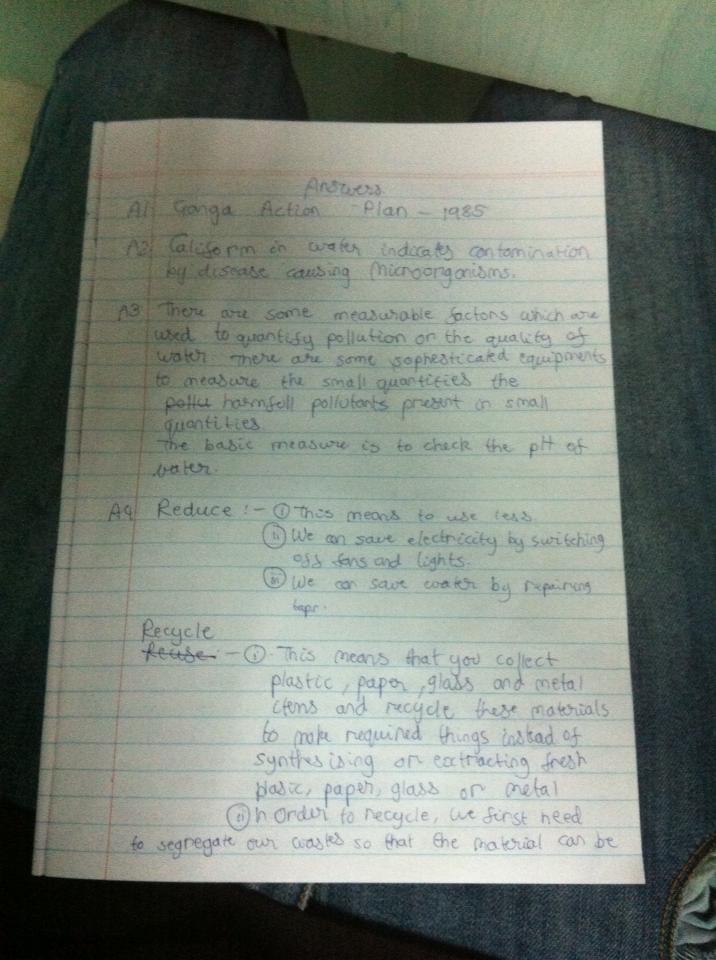 Answers
A1 Ganga Action Plan - 1985
A2 Caliform in water indicates contamination
by disease causing Microorganisms.
A3 There are some measurable factors which are
used to quantify pollution or the quality of
water. There are some sophesticated equipments
to measure the small quantities the
pollu harmfull pollutants present in small
quantities
The basic measure is to check the pH of
water.
A4 Reduce :- (i) This means to use less.
(ii) We can save electricity by switching
off fans and lights.
(iii) We can save water by repairing
taps.
Recycle
Reuse :- (i). This means that you collect
plastic, paper, glass and metal
items and recycle these materials
to make required things instead of
synthesising or extracting fresh
plasic, paper, glass or metal
(ii) In Order to recycle, we first need
to segregate our wastes so that the material can be